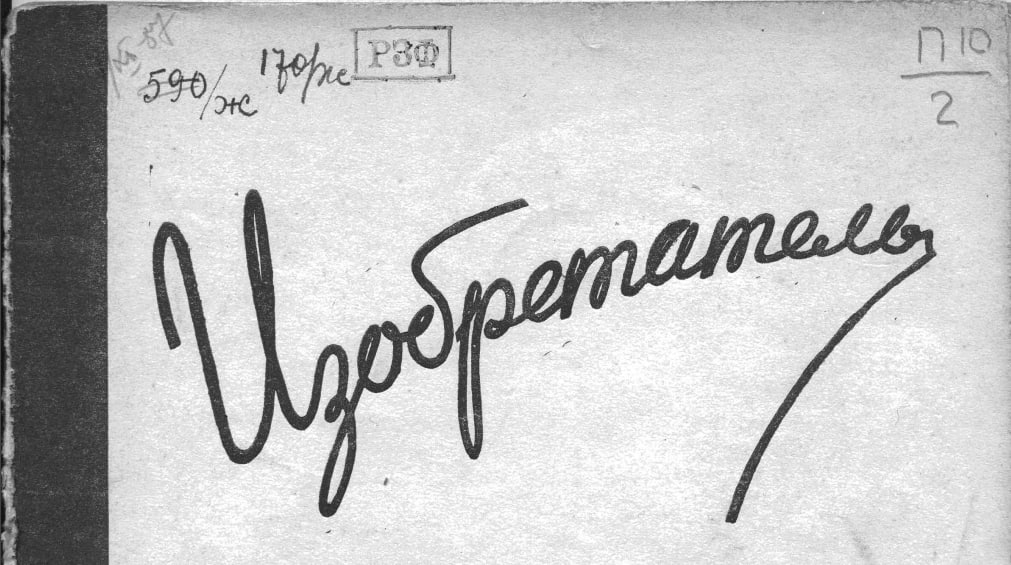 590/ж 170рж РЗФ П 10
2
Изобретатель